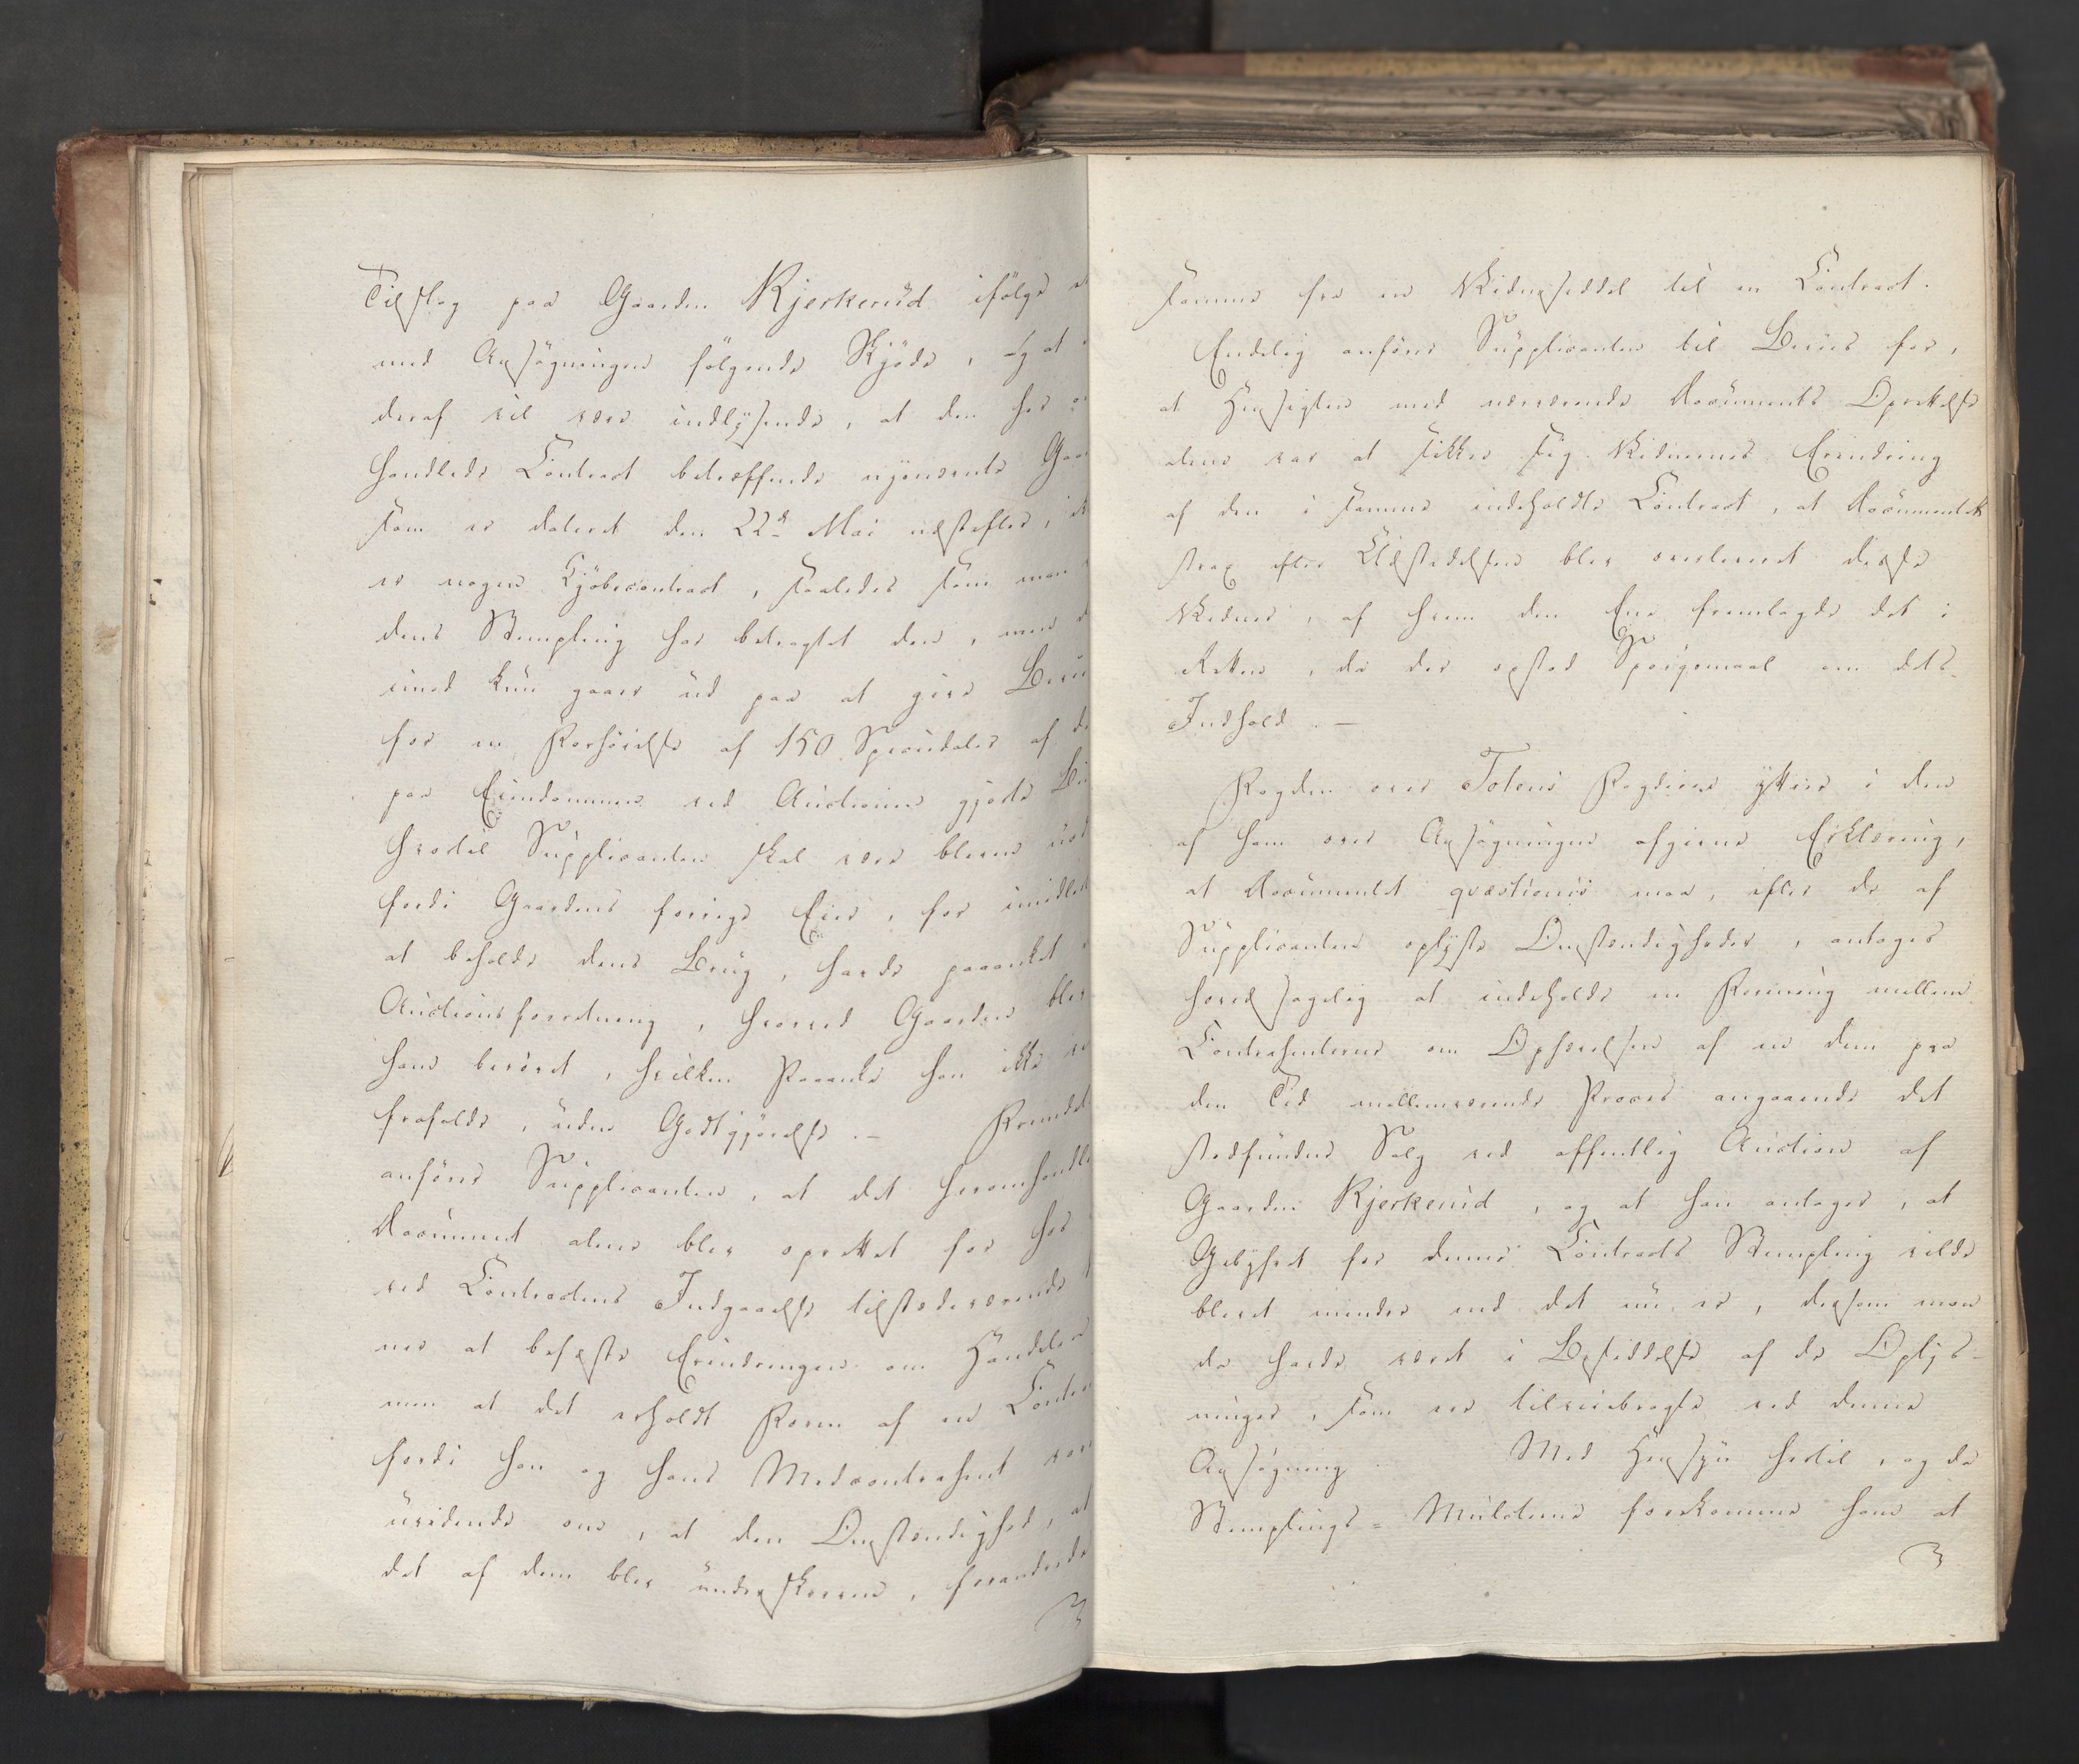 Tilslag paa Gaarden Kjerkerud ifølge
med Ansøgningen følgende Skjøde, og at
deraf vil være indlysende, at den her
handlede Contract betræffende nysnævnte
som er dateret den 22de Mai næstefter,
er nogen Kjøbecontract, saaledes som man
dens Stempling har betragtet den, men
imod kun gaaer ud paa at give
for en Forhøielse af 150 Speciedaler af
paa Eiendommen ved Auctionen gjorte
hvortil Supplicanten skal være bleven
fordi Gaardens forrige Eier, for
at beholde dens Brug, havde paaanket
Auctionsforretning, hvorved Gaarden blev
ham berøvet, hvilken Paaanke han ikke
frafalde, uden Godtgjørelse. —
anfører Supplicanten, at det
Document alene blev oprettet for
ved Contractens Indgaaelse tilstedeværende
ner at befæste Erindringen om Handelen
men at det erholdt Form af en
fordi han og hans Medcontrahent
uvidende om, at den Omstændighed, at
det af dem blev underskreven, forandrede
samme fra en Vidneseddel til en Contract.
Endelig anfører Supplicanten til Beviis for,
at Hensigten med nærværende Documents Oprettelse
alene var at sikkre sig Vidnernes Erindring
af den i samme indeholdte Contract, at Documentet
strax efter Udstedelsen blev overleveret disse
Vidner, af hvem den Ene fremlagde det i
Retten, da der opstod Spørgsmaal om dets
Indhold. —
Fogden over Totens Fogderie yttrer i den
af ham over Ansøgningen afgivne Erklæring,
at Documentet qvæstionis maa, efter de af
Supplicanten oplyste Omstændigheder, antages
hovedsagelig at indeholde en Forening mellem
Contrahenterne om Ophævelsen af en dem paa
den Tid mellemværende Proces angaaende det
stedfundne Salg ved offentlig Auction af
Gaarden Kjerkerud, og at han antager, at
Gebyhret for denne Contracts Stempling vilde
blevet mindre end det nu er, dersom man
da havde været i Besiddelse af de Oplys-
ninger, som ere tilveiebragte ved denne
Ansøgning. Med Hensyn hertil, og da
Stemplings=Mulcterne forekomme ham at